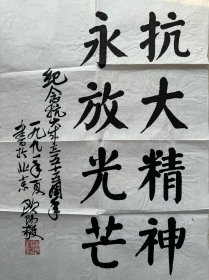 抗大精神
永放光芒
纪念抗大建立五十五周年
一九九一年夏
书于北京